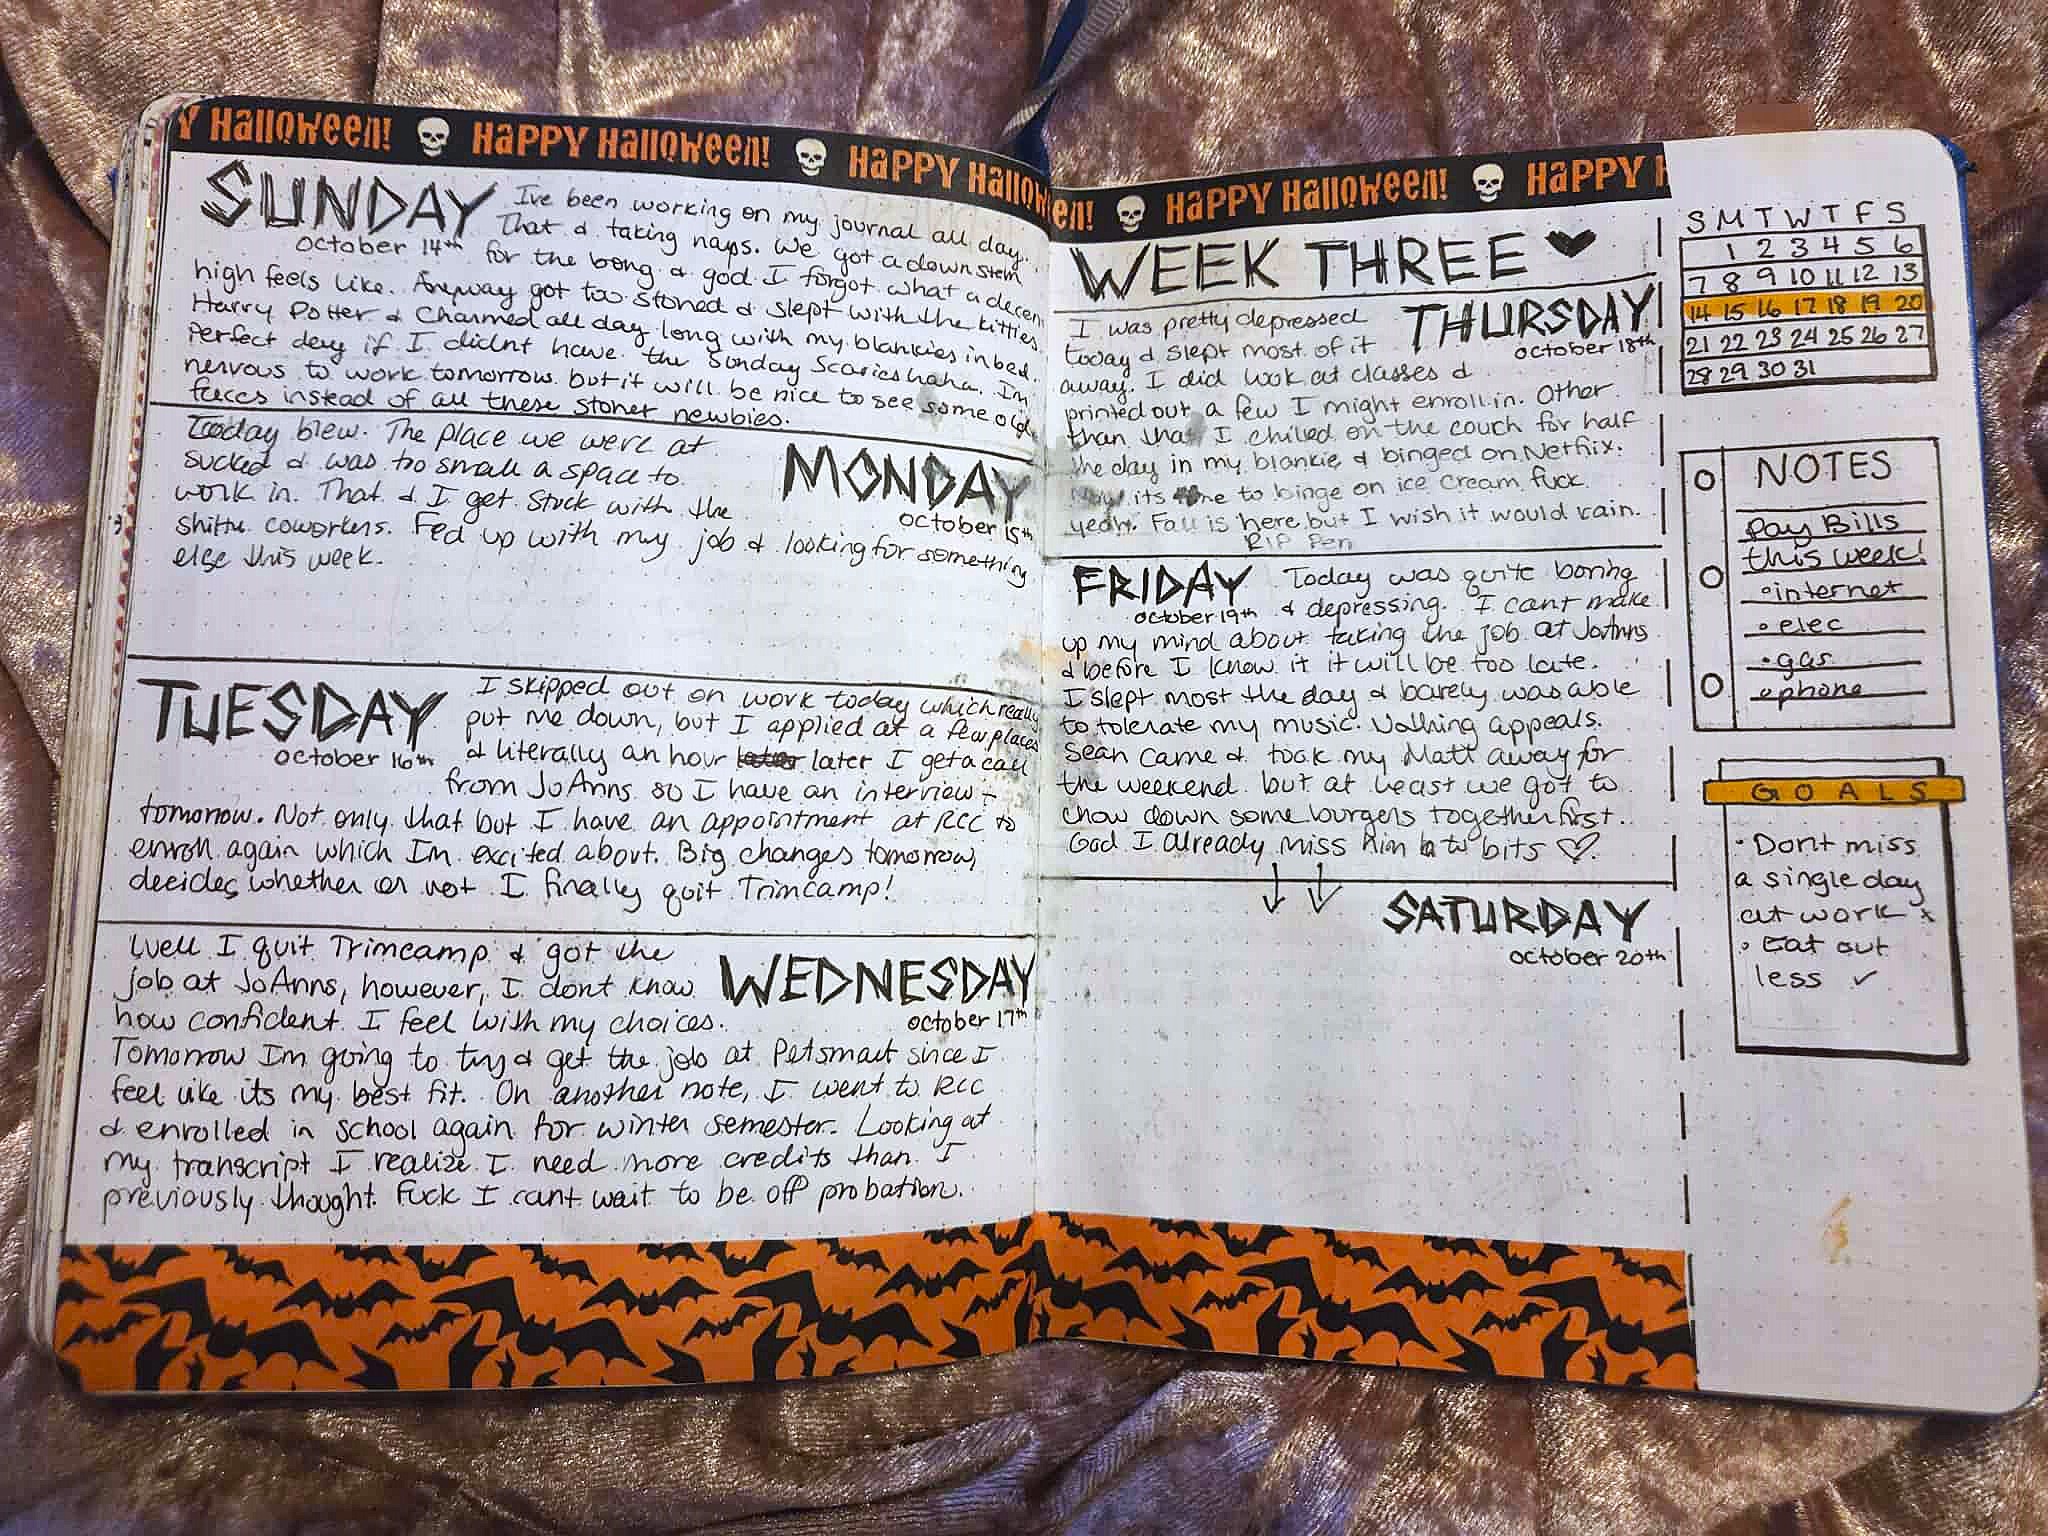 Y Halloween! HAPPY Halloween! HAPPY Halloween! HAPPY Halloween! HAPPY H
SUNDAY
October 14th
I've been working on my journal all day.
That & taking naps. We got a down stem
for the bong & god I forgot what a decent
high feels like. Anyway got too stoned & slept with the kitties.
Harry Potter & Charmed all day long with my blankies in bed.
Perfect day if I didnt have the Sunday Scaries haha. Im
nervous to work tomorrow but it will be nice to see some old
faces instead of all these stoner newbies.
MONDAY
October 15th
Today blew. The place we were at
sucked & was too small a space to
work in. That & I get stuck with the
shitty coworkers. Fed up with my job & looking for something
else this week.
TUESDAY
October 16th
I skipped out on work today which really
put me down, but I applied at a few places
& literally an hour later I get a call
from JoAnns so I have an interview
tomorrow. Not only that but I have an appointment at RCC to
enroll again which Im excited about. Big changes tomorrow,
decides whether or not I finally quit Trimcamp!
WEDNESDAY
October 17th
Well I quit Trimcamp & got the
job at JoAnns, however, I dont know
how confident I feel with my choices.
Tomorrow Im going to try & get the job at Petsmart since I
feel like its my best fit. On another note, I went to RCC
& enrolled in school again for winter semester. Looking at
my transcript I realize I need more credits than I
previously thought. Fuck I cant wait to be off probation.
WEEK THREE
THURSDAY
October 18th
I was pretty depressed
today & slept most of it
away. I did look at classes &
printed out a few I might enroll in. Other
than that I chilled on the couch for half
the day in my blankie & binged on Netflix.
Now its time to binge on ice cream fuck
yeah. Fall is here but I wish it would rain.
RIP Pen
FRIDAY
October 19th
Today was quite boring
& depressing. I cant make
up my mind about taking the job at JoAnns
& before I know it it will be too late.
I slept most the day & barely was able
to tolerate my music. Nothing appeals.
Sean came & took my Matt away for
the weekend but at least we got to
chow down some burgers together first.
God I already miss him to bits
SATURDAY
October 20th
S M T W T F S
1 2 3 4 5 6
7 8 9 10 11 12 13
14 15 16 17 18 19 20
21 22 23 24 25 26 27
28 29 30 31
NOTES
Pay Bills
this week!
• internet
• elec
• gas
• phone
GOALS
• Dont miss
a single day
at work x
• Eat out
less ✓